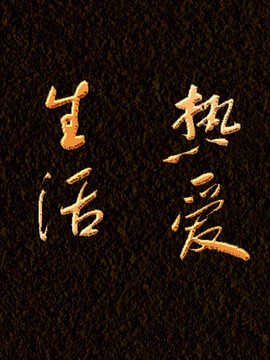 热爱
生活